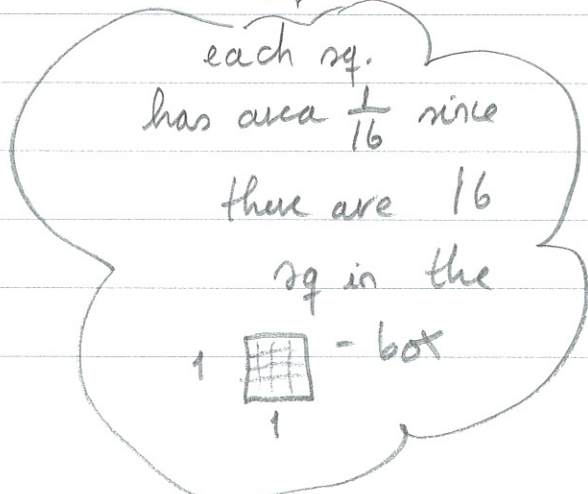 each sq.
has area 1/16 since
there are 16
sq in the
1 - box
1